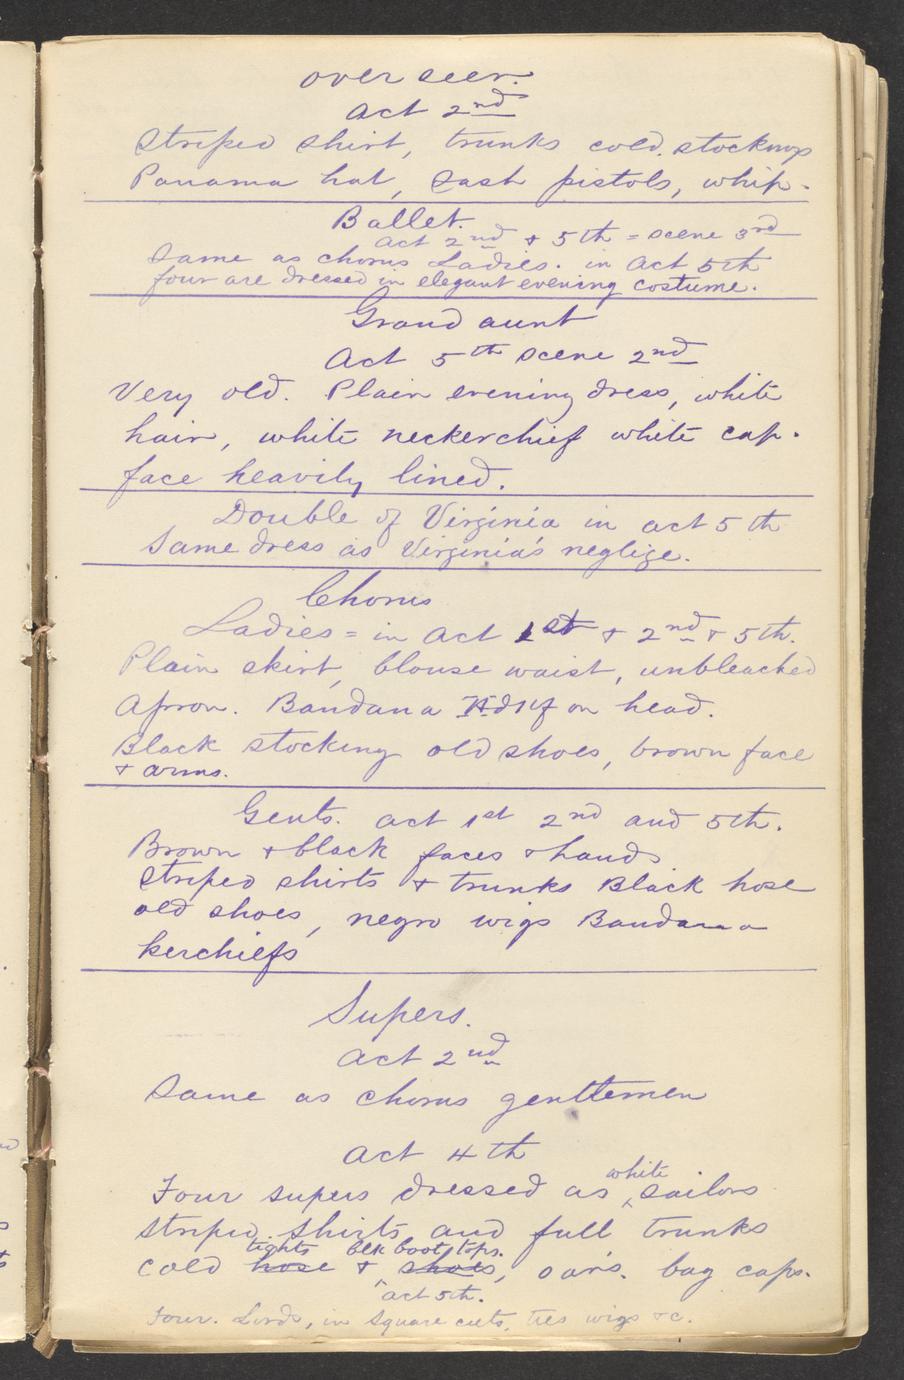 over seer.
Act 2nd
Striped shirt, trunks cold. stockings
Panama hat, Sash pistols, whip.
Ballet.
Act 2nd + 5th = scene 3rd
Same as chorus Ladies. in Act 5th
four are dressed in elegant evening costume.
Grand aunt
Act 5th scene 2nd
Very old. Plain evening dress, white
hair, white neckerchief white cap.
face heavily lined.
Double of Virginia in act 5th
Same dress as Virginia's neglige.
Chorus
Ladies = in Act 1st + 2nd + 5th.
Plain skirt, blouse waist, unbleached
Apron. Bandana Hdkf on head.
Black stocking old shoes, brown face
+ arms.
Gents. act 1st 2nd and 5th.
Brown + black faces + hands
Striped shirts + trunks Black hose
old shoes, negro wigs Bandana
kerchiefs
Supers.
Act 2nd
Same as chorus gentlemen
Act 4th
Four supers dressed as white sailors
striped shirts and full trunks
tights blk boot tops.
cold hose + shoes, oars. bag caps.
act 5th.
Four. Lords, in Square cuts, ties wigs +c.